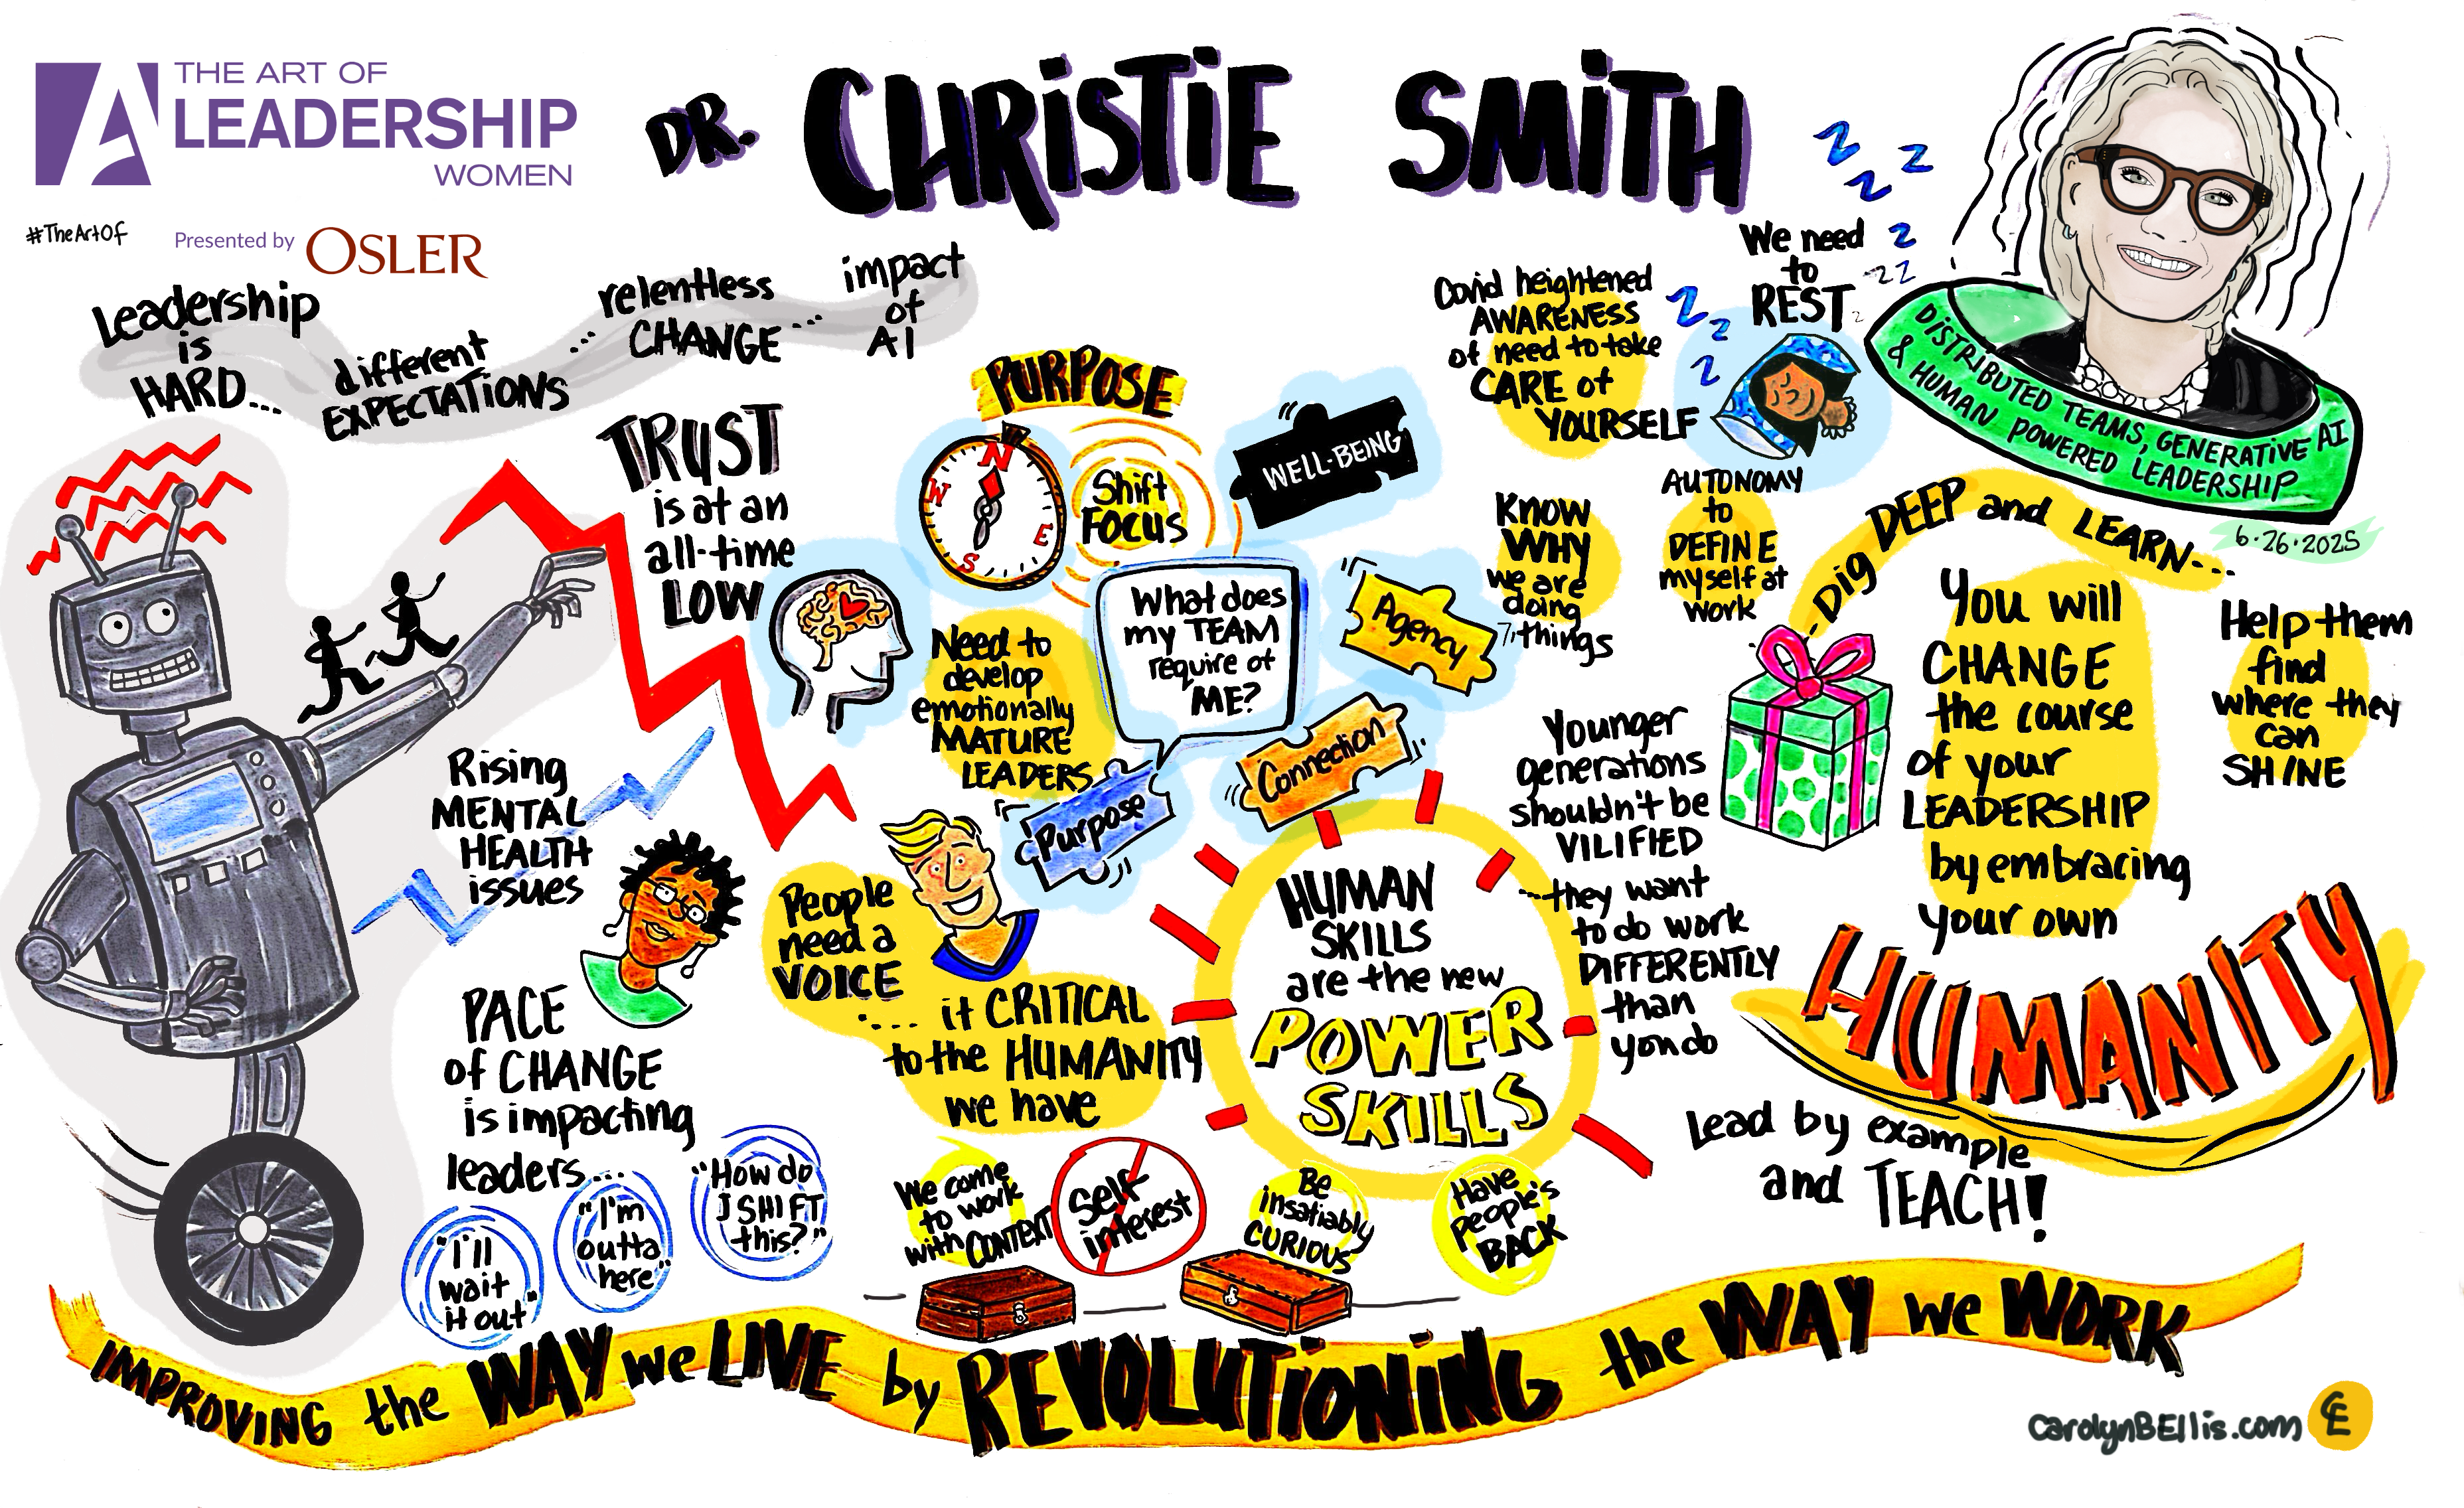 THE ART OF
LEADERSHIP
WOMEN
#TheArtOf
Presented by OSLER
DR. CHRiSTiE SMiTH
Leadership
is
HARD...
different
EXPECTATIONS
... relentless
CHANGE ...
impact
of
AI
TRUST
is at an
all-time
LOW
Rising
MENTAL
HEALTH
issues
PACE
of CHANGE
is impacting
leaders...
"I'll
wait
it out"
"I'm
outta
here"
"How do
I SHIFT
this?"
PURPOSE
N
W
E
S
Shift
FOCUS
WELL-BEING
What does
my TEAM
require of
ME?
Agency
Connection
Purpose
Need to
develop
emotionally
MATURE
LEADERS
People
need a
VOICE
.... it CRITICAL
to the HUMANITY
we have
HUMAN
SKILLS
are the new
POWER
SKILLS
We come
to work
with CONTEXT
Self
interest
Be
insatiably
CURIOUS
Have
People's
BACK
Covid heightened
AWARENESS
of need to take
CARE of
YOURSELF
We need
to
REST
z z z z z z z z z z
KNOW
WHY
we are
doing
things
AUTONOMY
to
DEFINE
myself at
work
Younger
generations
shouldn't be
VILIFIED
...they want
to do work
DIFFERENTLY
than
you do
DISTRIBUTED TEAMS, GENERATIVE AI
& HUMAN POWERED LEADERSHIP
6·26·2025
-Dig DEEP and LEARN...
You will
CHANGE
the course
of your
LEADERSHIP
by embracing
your own
HUMANITY
Help them
find
where they
can
SHINE
Lead by example
and TEACH!
IMPROVING the WAY we LIVE by REVOLUTiONiNG the WAY we WORK
carolynBEllis.com
CE